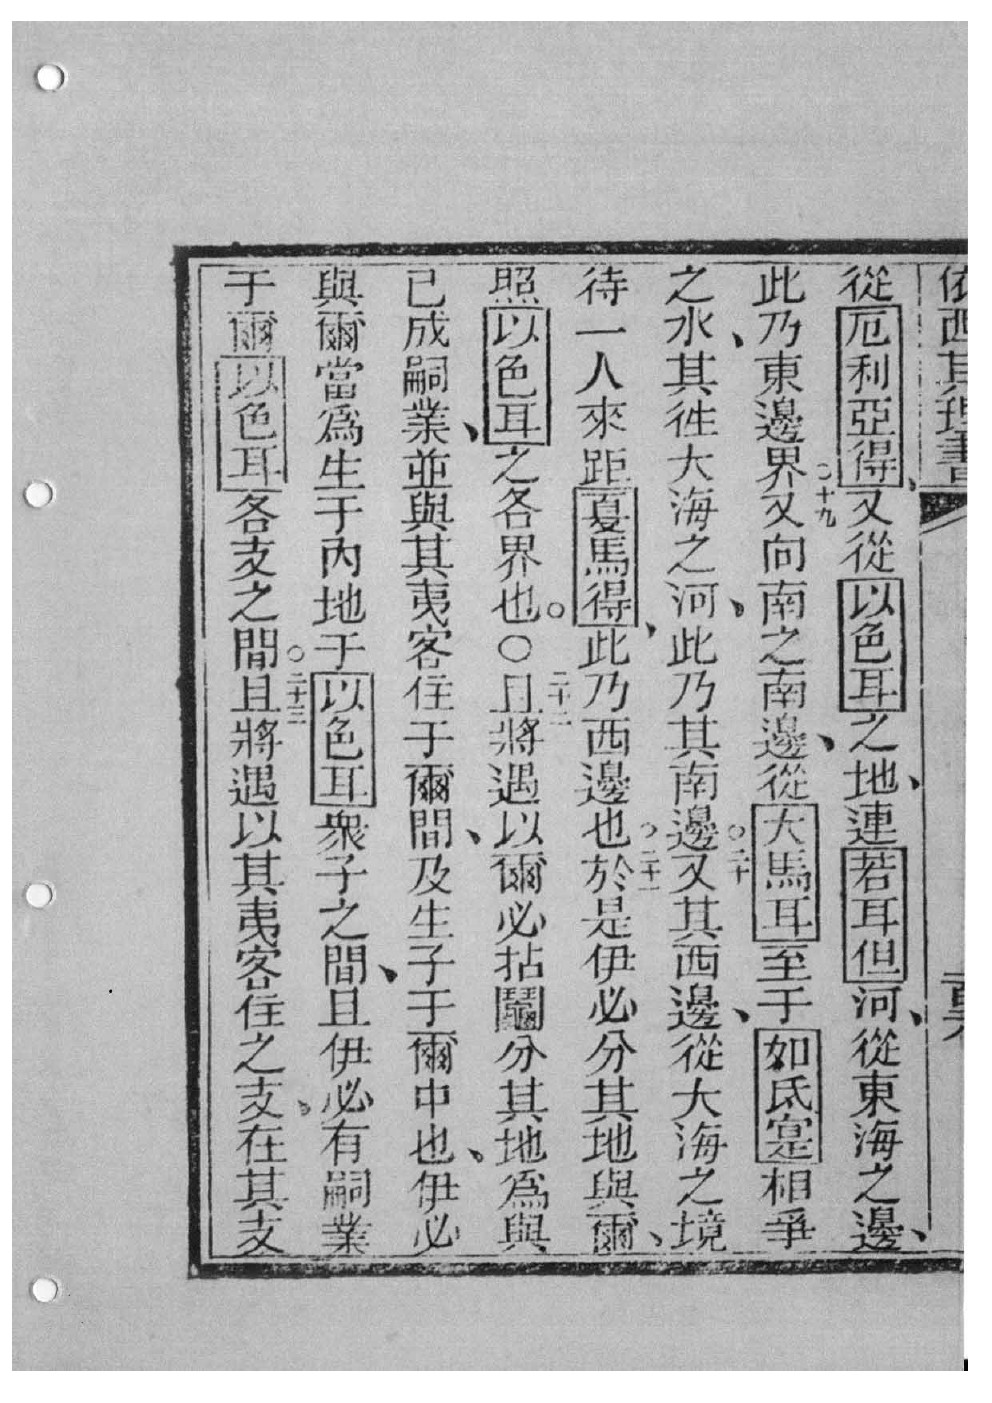 依西其理書
從厄利亞得、又從以色耳之地、連若耳但河、從東海之邊、
此乃東邊界○十九又向南之南邊、從大馬耳至于如氐寔相爭
之水、其徃大海之河、此乃其南邊○二十又其西邊、從大海之境
待一人來距夏馬得、此乃西邊也○二十一於是伊必分其地與爾、
照以色耳之各界也。○二十二且將遇以爾必拈鬮分其地爲與
已成嗣業、並與其夷客住于爾間、及生子于爾中也、伊必
與爾當爲生于內地于以色耳衆子之間、且伊必有嗣業
于爾以色耳各支之間○二十三且將遇以其夷客住之支、在其支